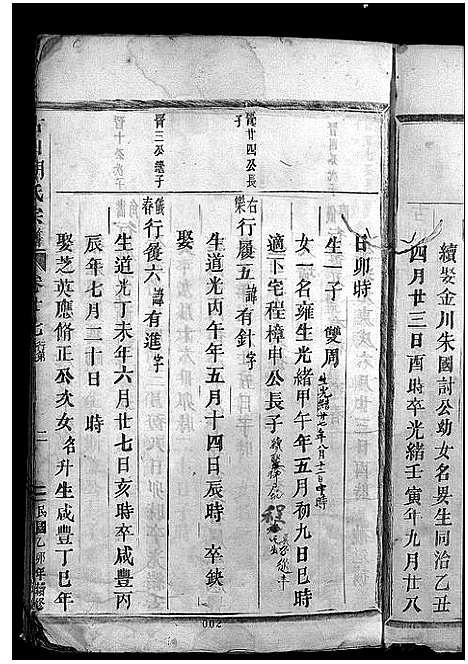 續娶金川朱國討公幼女名男生同治乙丑
四月廿三日酉時卒光緒壬寅年九月廿八
日卯時
生一子 雙周
生光緒廿七年八月十二日申時
女一名雍生光緒甲午年五月初九日巳時
適下宅程樟申公長子
從廿四公長子
右樂行履五諱有針字
生道光丙午年五月十四日辰時 卒缺
娶
晉三公繼子
儀春行後六諱有進字
生道光丁未年六月廿七日亥時卒咸豐丙
辰年七月二十日 時
娶芝英應脩正公次女名升生咸豐丁巳年
胡氏宗譜
民國乙卯年續修
002